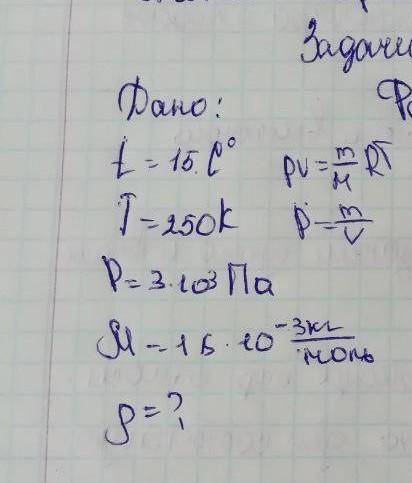 Задачи
Дано:
t = 15 C°
PV = m/M RT
T = 250K
ρ = m/V
P = 3·10³ Па
M = 16·10⁻³ кг/моль
ρ = ?